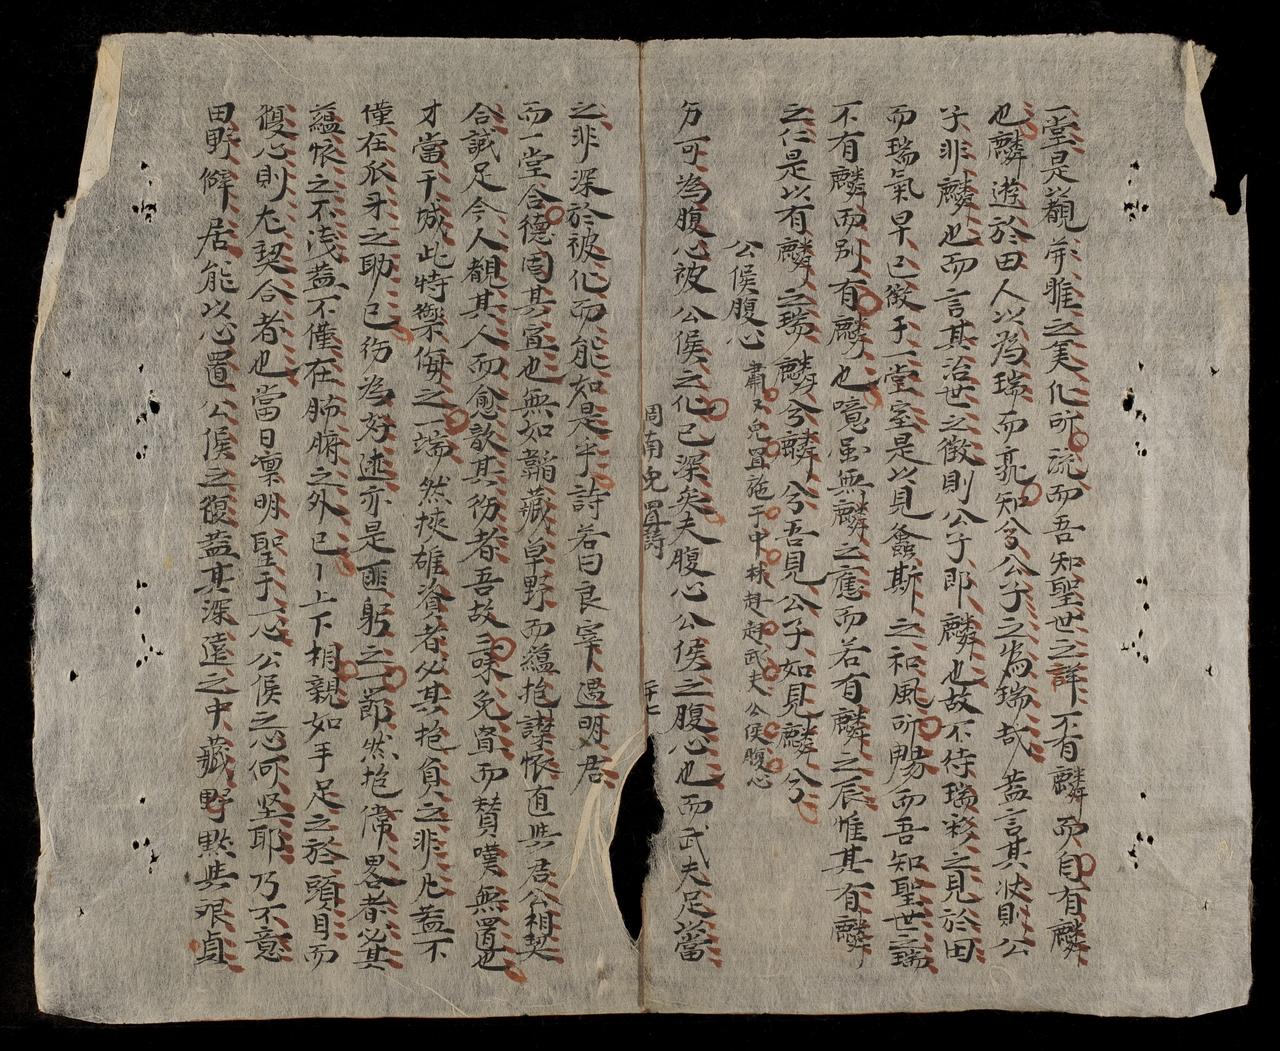 一堂是以觀笄雎之美化所流而吾知聖世之詳不有麟而自有麟
也麟遊於田人以為瑞而孰知兮公子之為瑞哉蓋言其淑則公
子非麟也而言其治世之徵則公子即麟也故不待瑞彩之見於田
而瑞氣早已徵于一堂室是以見螽斯之和風所賜而吾知聖世之瑞
不有麟而別有麟也噫虽無麟之應而若有麟之辰惟其有麟
之仁是以有麟之瑞麟兮麟兮吾見公子如見麟兮
公侯腹心 肅又免罝施于中林赳赳武夫公侯腹心
方可為腹心被公侯之化已深矣夫腹心公侯之腹心也而武夫足當
周南免罝詩
之非深於被化而能如是乎詩若曰良宰遇明君
而一堂合德固其宜也無如韜藏草野而蘊抱謹懷直與君公相契
合誠足令人覩其人而愈歆其仿者吾故三味免罝而贊嘆無置也
才當干城此特禦侮之一端然挾雄資者必其抱負之非凡蓋不
僅在爪牙之助已仿為好逑亦是匪躬之一節然抱偉畧者必其
蘊懷之不浅蓋不僅在肺腑之外已上下相親如手足之於頭目而
復心則尤契合者也當日凜明聖于一心公侯之心何坚耶乃不意
田野僻居能以心置公侯之復蓋其深遠之中藏野默與艰貞